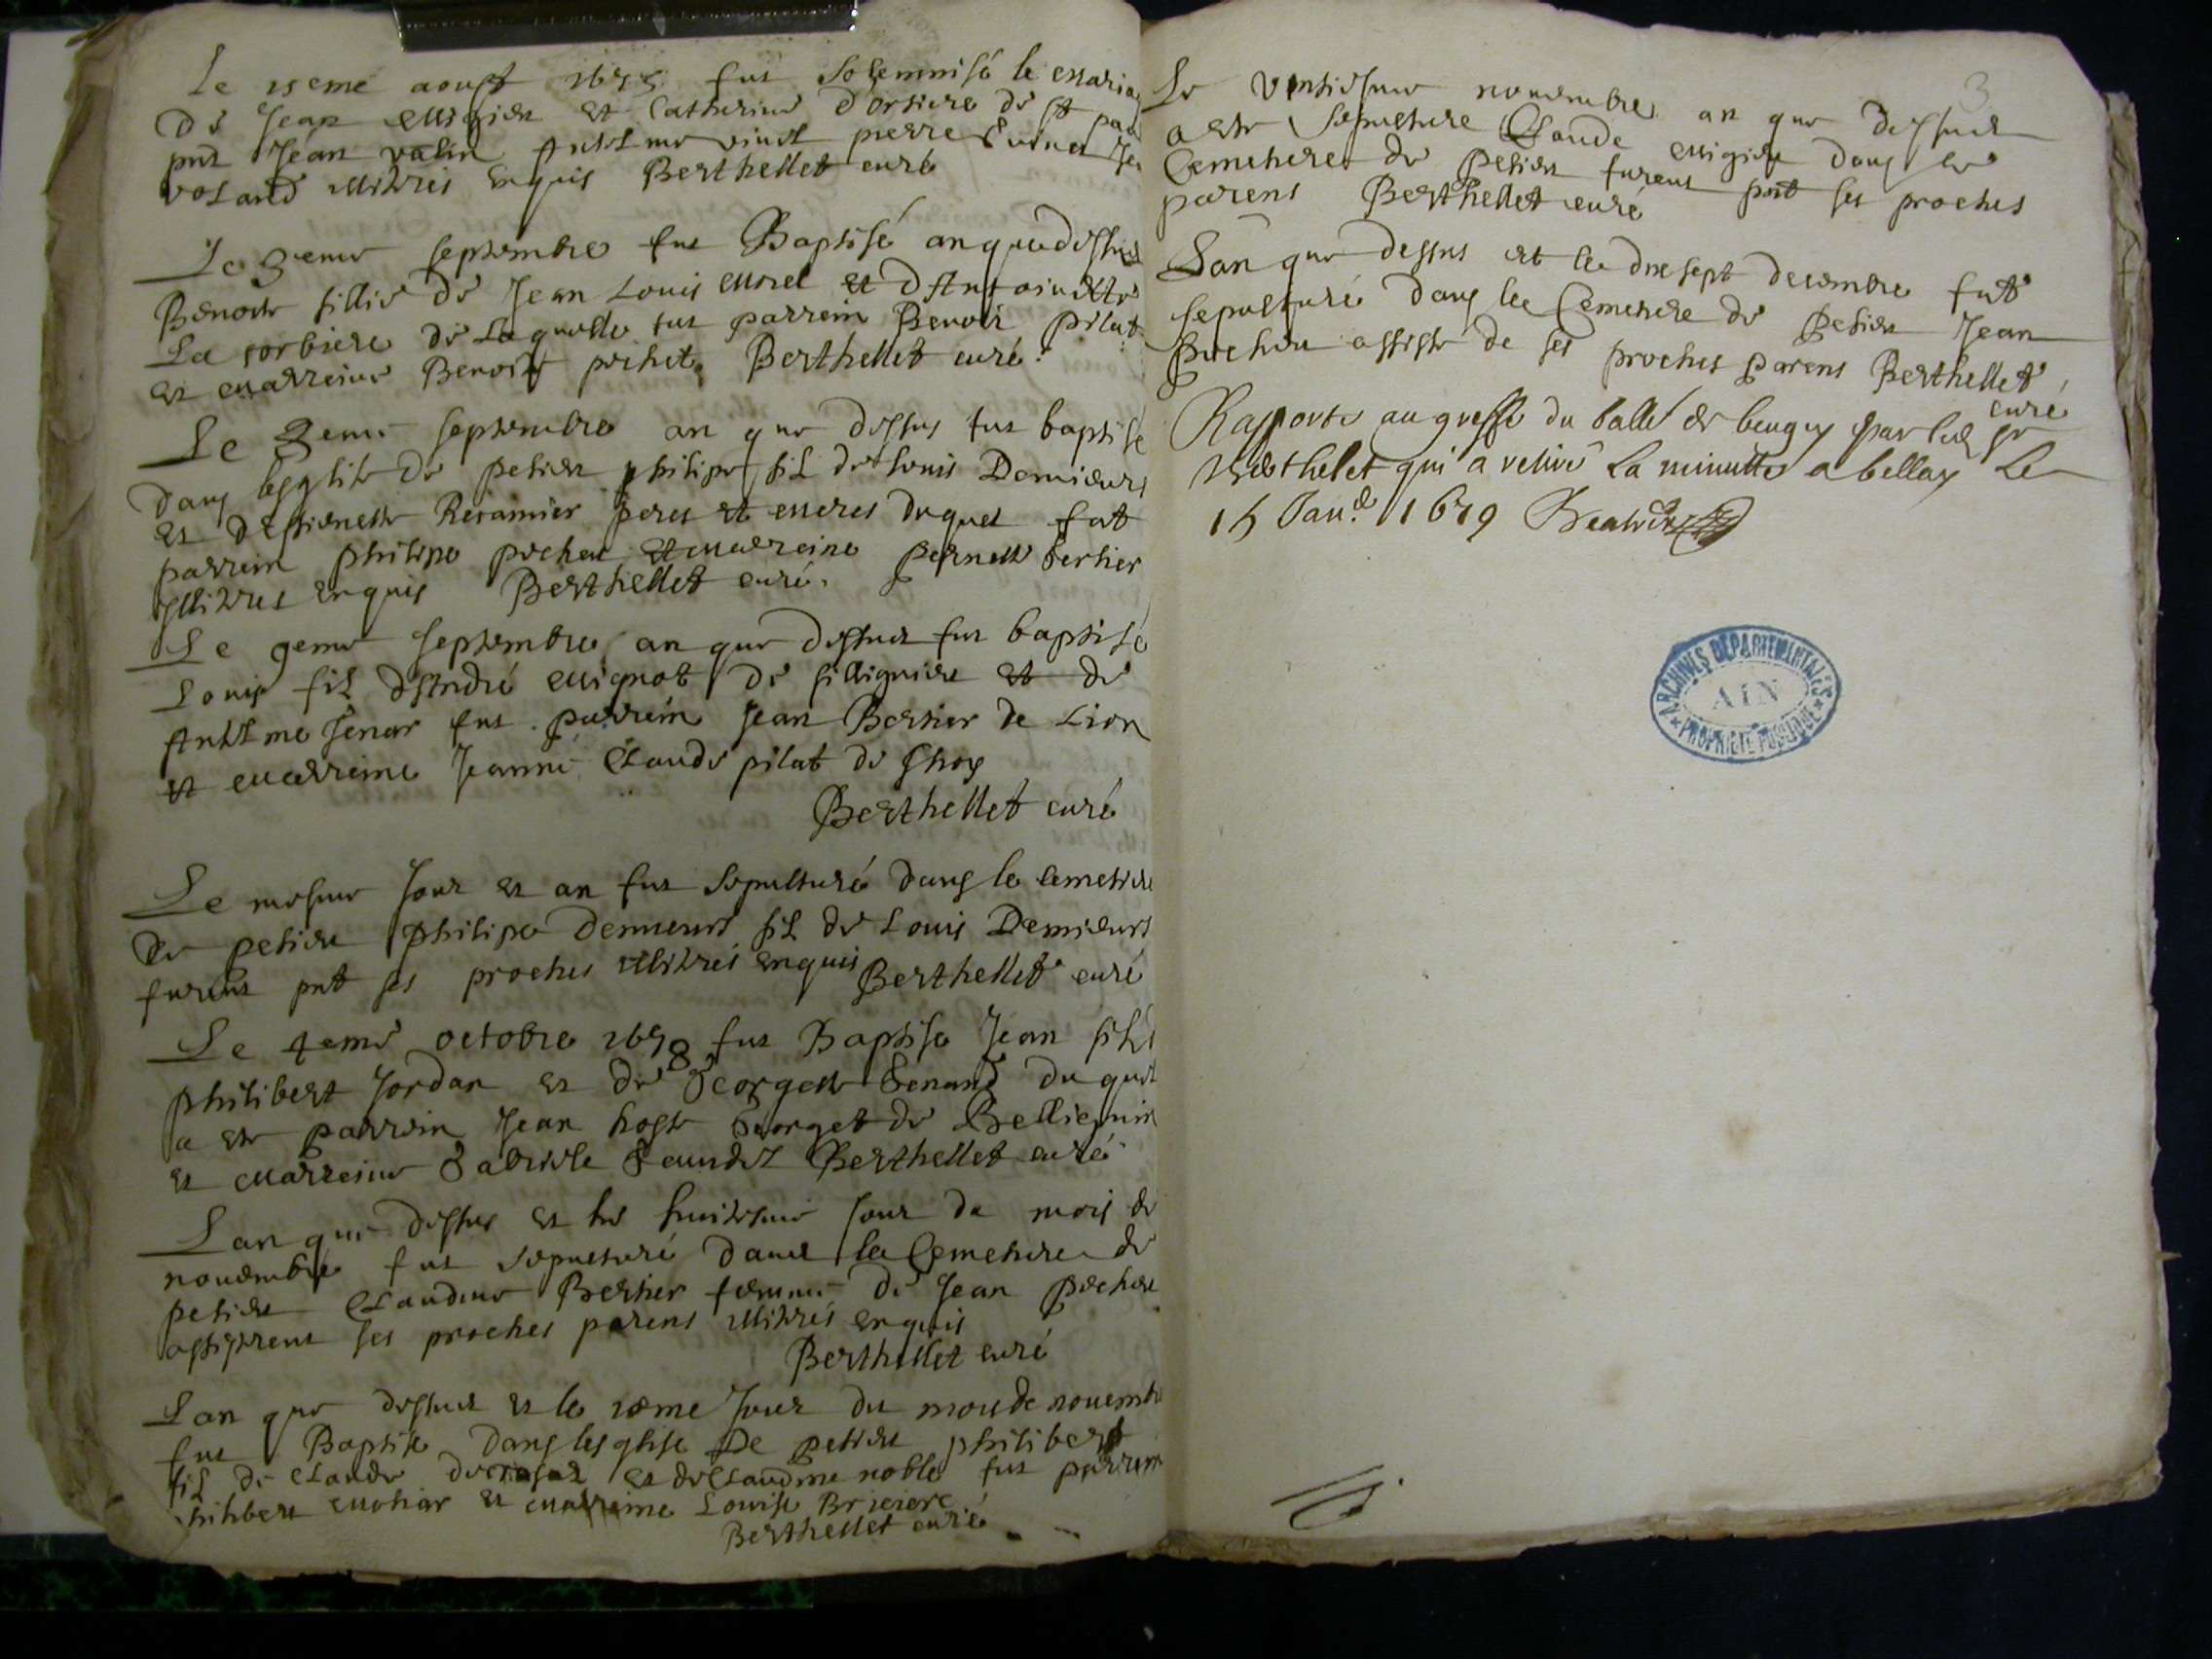 Le 15eme aoust 167 fut Solemnisé le maria
de Jean et Catherine d'orsiere de st pau
pnt Jean valin Antelme vinct pierre
voland illitrés enquis Berthellet curé
Le 3eme septembre fut Baptisé an que dessus
Benoite fillie de Jean Louis Morel et d'Anthoinette
La corbiere de Laquelle fut parrein Benoit pilat
et marreine Benoite pochet Berthellet curé
Le 3eme septembre an que dessus fut baptisé
dans lesglise de petieu philipe fil de Louis Demieurs
et destiennette Recamier peres et meres duquel fut
parrein philipe pochet et marreine pernette Berhier
illitres enquis Berthellet curé
Le 9eme septembre an que dessus fut baptisé
Louis fil d'André Mignot de et de
Antelme Jenar fut parrein Jean Berhier de Lion
et marreine Jeanne Claude pilat de
Berthellet curé
Le mesme Jour et an fut Sepulturé dans le cemetiere
de petieu philipe Demieurs fil de Louis Demieurs
furent pnt ses proches illitrés enquis Berthellet curé
Le 4eme octobre 1678 fut Baptisé Jean fil de
philibert Jordan et de Georgette Genand du quel
a este parrein Jean hoste Georget de
et marreine Gabriele Berthellet curé
Lan que dessus et le huitiesme Jour du mois de
novembre fut Sepulturé dans le Cemetiere de
petieu Claudine Berhier femme de Jean
assisterent ses proches parens illitrés enquis
Berthellet curé
Lan que dessus et le Jour du mois de novembre
fut Baptisé dans lesglise De petieu philibert
fil de Claude et de Claudine noble fut parrein
et marreine Louise
Berthellet curé
3
Le ventiesme novembre an que dessus
a este Sepulturé Claude dans le
Cemetiere de petieu furent pnt ses proches
parens Berthellet curé
Lan que dessus et le dixsept decembre fut
sepulturé dans le Cemetiere de petieu Jean
assiste de ses proches parens Berthellet
curé
Rapporté au greffe du balle de beugey par led sr
Berthelet qui a retiré La minutte a bellay Le
15 Janr 1679
ARCHIVES DÉPARTEMENTALES
AIN
PROPRIÉTÉ PUBLIQUE